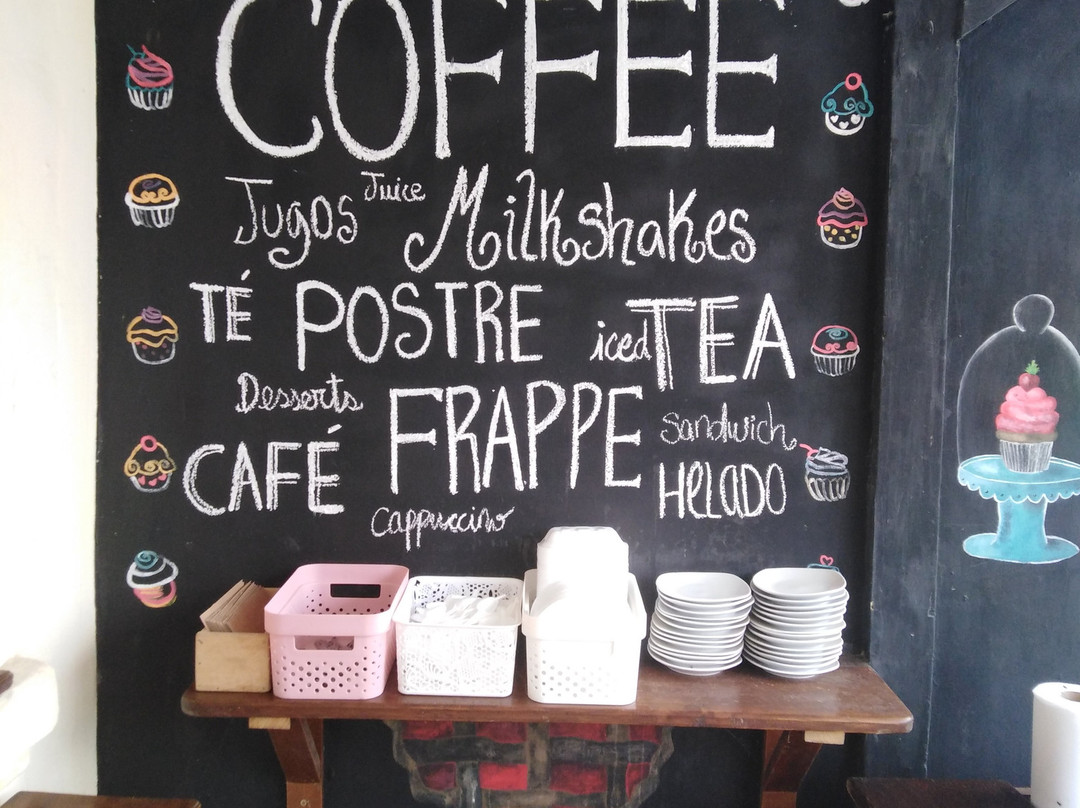 COFFEE
Jugos Juice Milkshakes
TÉ POSTRE iced TEA
Desserts FRAPPE Sandwich
CAFÉ HELADO
Cappuccino